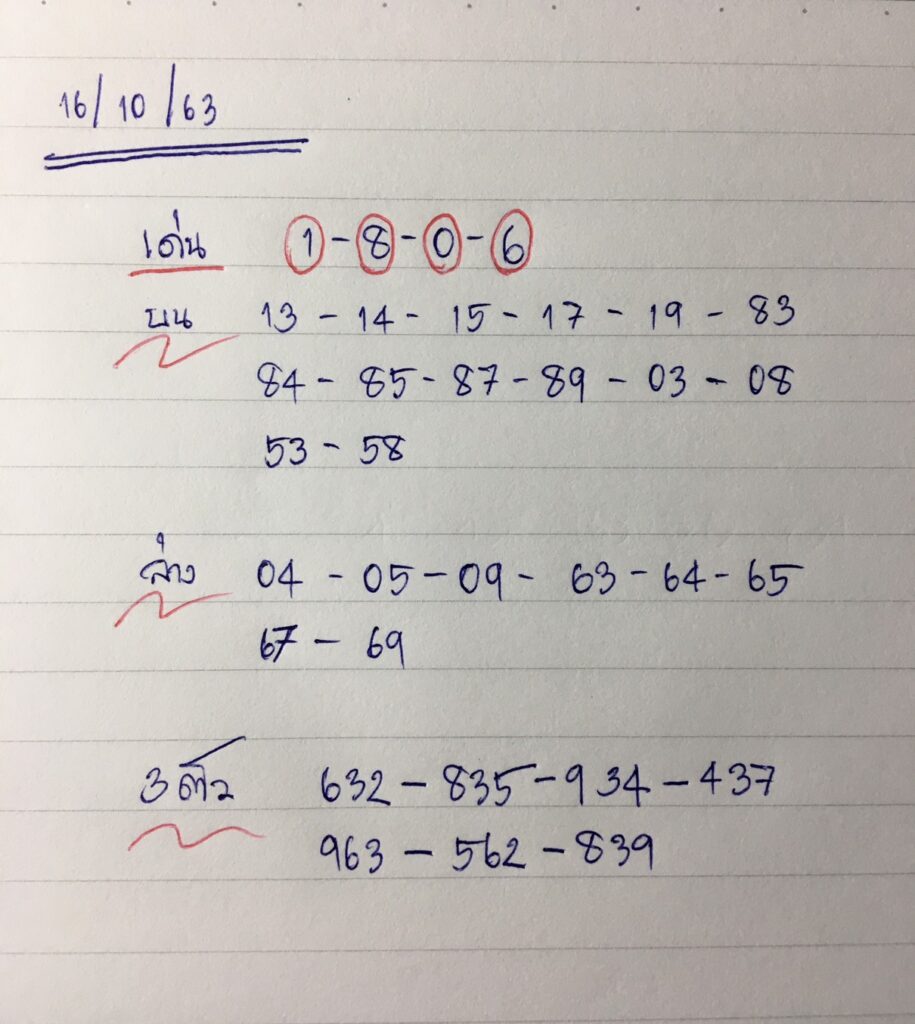 16/10/63
เด่น 1-8-0-6
บน 13 - 14 - 15 - 17 - 19 - 83
84 - 85 - 87 - 89 - 03 - 08
53 - 58
ล่าง 04 - 05 - 09 - 63 - 64 - 65
67 - 69
3 ตัว 632 - 835 - 934 - 437
963 - 562 - 839